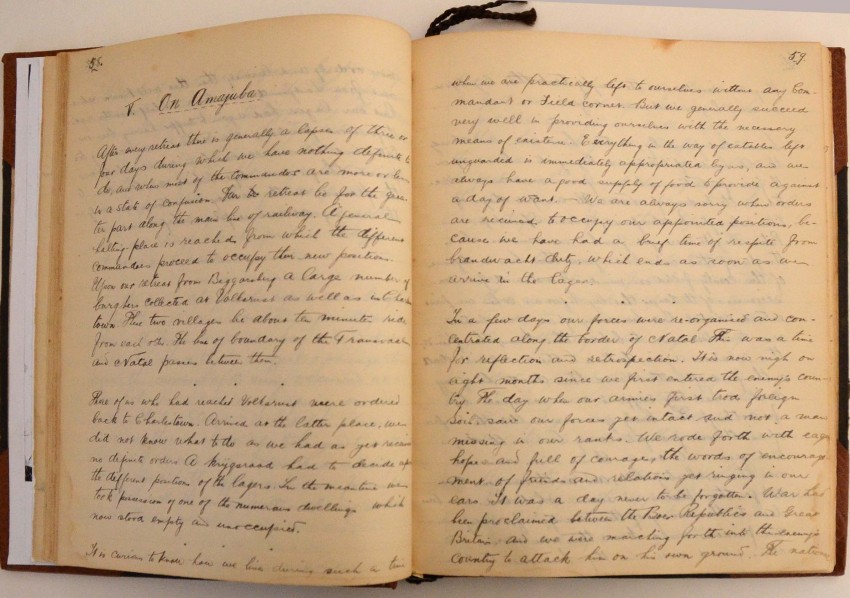 58.
V. On Amajuba
After every retreat there is generally a lapse of three or
four days during which we have nothing definite to
do, and when most of the commandos are more or less
in a state of confusion. The retreat lie for the grea-
ter part along the main line of railway. A general
halting-place is reached from which the different
commandoes proceed to occupy their new positions.
Upon our retreat from Biggarsberg a large number of
burghers collected at Volksrust as well as into
town These two villages lie about ten minutes ride
from each other. The line of boundary of the Transvaal
and Natal passes between them.
Those of us who had reached Volksrust were ordered
back to Charlestown. Arrived at the latter place, we
did not know what to do as we had as yet received
no definite orders A Krygsraad had to decide upon
the different positions of the lagers. In the meantime we
took possession of one of the numerous dwellings which
now stood empty and unoccupied.
It is curious to know how we live during such a time
59.
when we are practically left to ourselves without any Com-
mandant or Field cornet. But we generally succeed
very well in providing ourselves with the necessary
means of existence. Everything in the way of eatables left
unguarded is immediately appropriated by us, and we
always have a good supply of food to provide against
a day of want. We are always sorry when orders
are received to occupy our appointed positions, be-
cause we have had a brief time of respite from
brandwacht duty, which ends as soon as we
arrive in the lager.
In a few days our forces were re-organised and con-
centrated along the border of Natal This was a time
for reflection and retrospection. It is now nigh on
eight months since we first entered the enemy's coun-
try. The day when our armies first trod foreign
soil saw our forces yet intact and not a man
missing in our ranks. We rode forth with eager
hopes and full of courage, the words of encourage-
ment of friends and relations yet ringing in our
ears it was a day never to be forgotten. War had
been proclaimed between the Boer Republics and Great
Britain and we were marching forth into the enemy's
country to attack him on his own ground. The nations